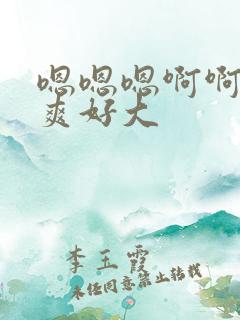 嗯嗯嗯啊啊
爽好大
李玉霞
未经同意禁止转载